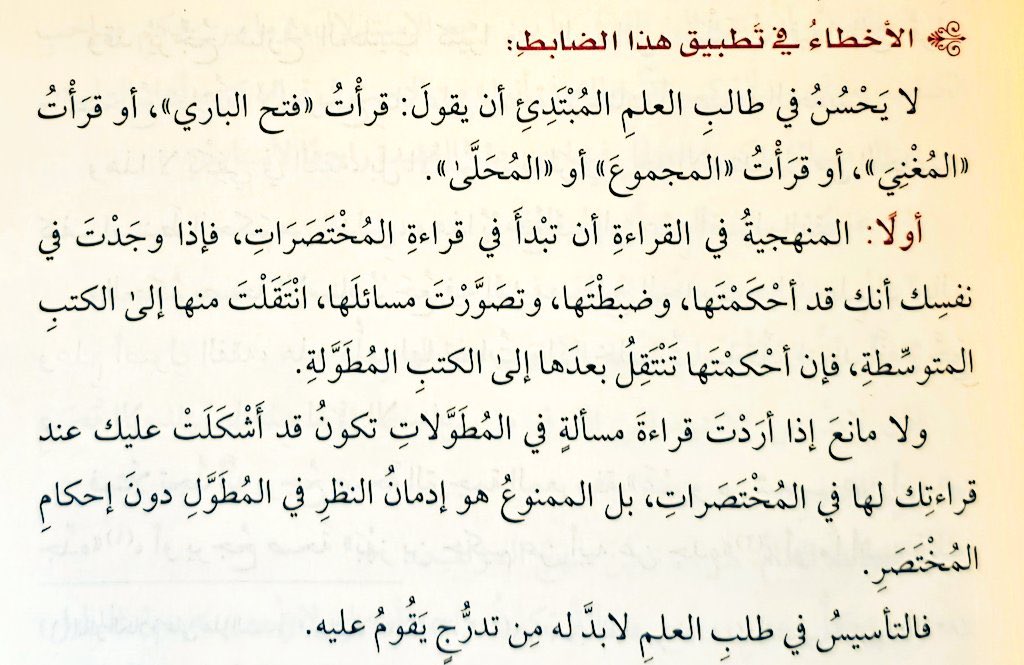 الأخطاءُ في تَطبيق هذا الضابطِ:
لا يَحْسُنُ في طالبِ العلمِ المُبْتَدِئِ أن يقولَ: قرأْتُ «فتح الباري»، أو قرَأْتُ
«المُغْنِيَ»، أو قرَأْتُ «المجموعَ» أو «المُحَلَّىٰ».
أولًا: المنهجيةُ في القراءةِ أن تبْدأَ في قراءةِ المُخْتَصَرَاتِ، فإذا وجَدْتَ في
نفسِك أنك قد أحْكَمْتَها، وضبَطْتَها، وتصَوَّرْتَ مسائلَها، انْتَقَلْتَ منها إلىٰ الكتبِ
المتوسِّطةِ، فإن أحْكمْتَها تَنْتَقِلُ بعدَها إلىٰ الكتبِ المُطَوَّلةِ.
ولا مانعَ إذا أرَدْتَ قراءةَ مسألةٍ في المُطَوَّلاتِ تكونُ قد أَشْكَلَتْ عليك عند
قراءتِك لها في المُخْتَصَراتِ، بل الممنوعُ هو إدمانُ النظرِ في المُطَوَّلِ دونَ إحكامِ
المُخْتَصَرِ.
فالتأسيسُ في طلبِ العلمِ لابدَّ له مِن تدرُّجٍ يَقُومُ عليه.